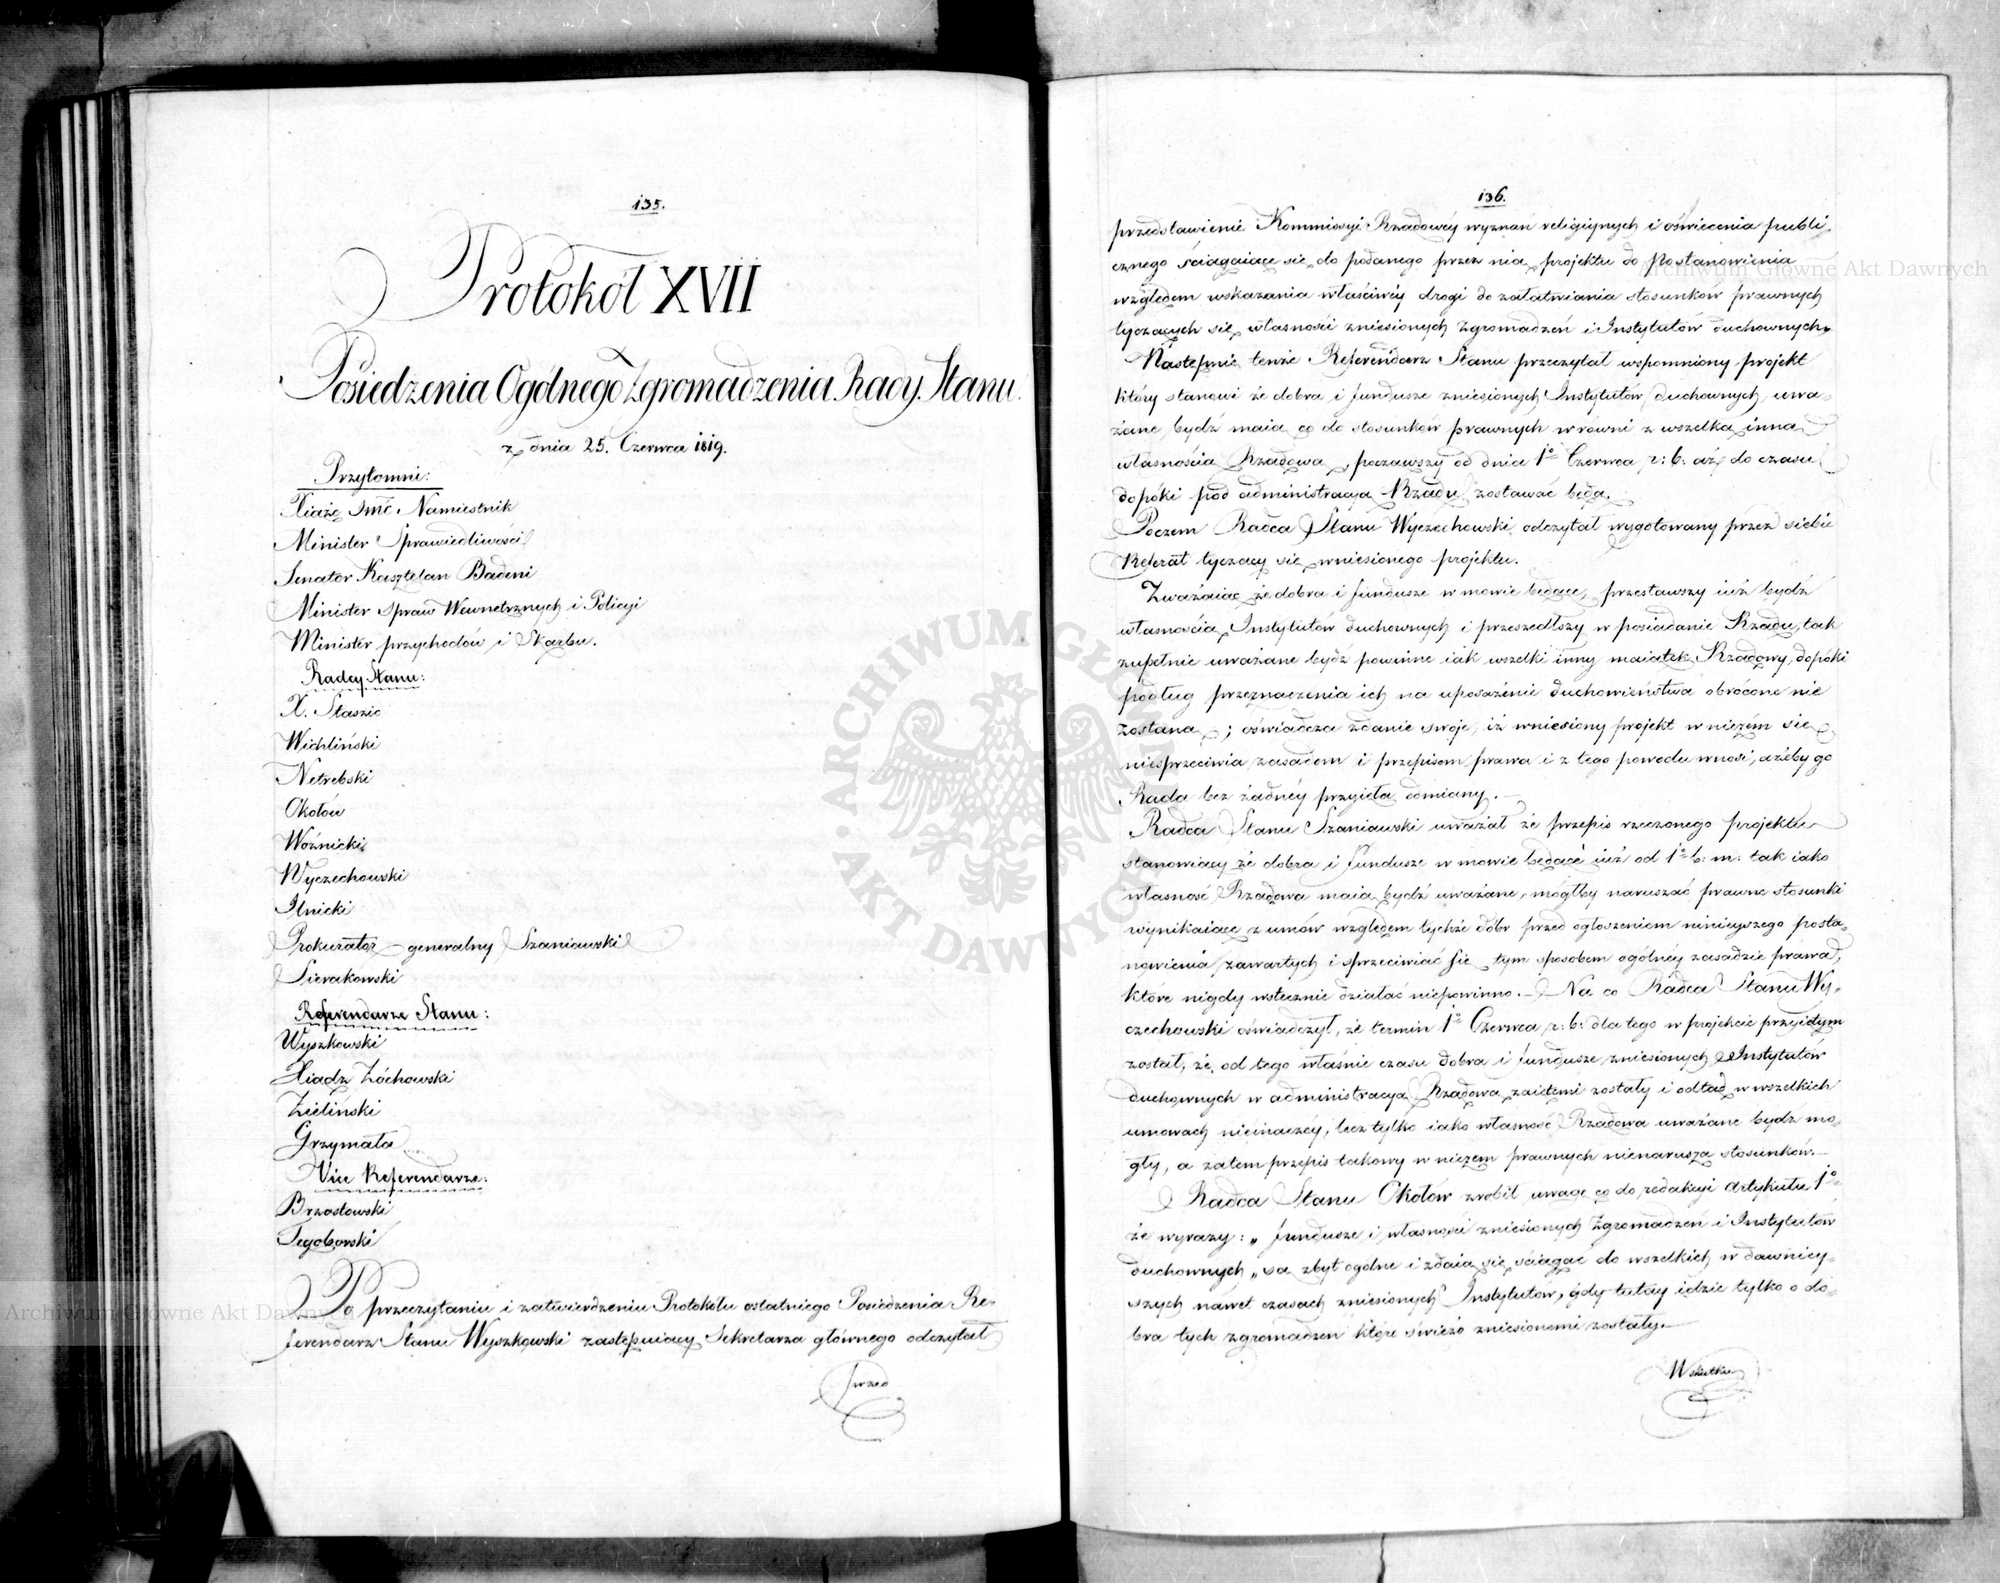 135.
Protokół XVII
Posiedzenia Ogólnego Zgromadzenia Rady Stanu
z dnia 25. Czerwca 1819.
Przytomni:
Xiążę Jmć Namiestnik
Minister Sprawiedliwości
Senator Kasztelan Badeni
Minister Spraw Wewnętrznych i Policyi
Minister przychodów i Skarbu.
Radcy Stanu:
X. Staszic
Wichliński
Netrebski
Okołow
Woźnicki
Wyczechowski
Ilnicki
Prokurator generalny Szaniawski
Sierakowski
Referendarze Stanu:
Wyszkowski
Xiądz Żóchowski
Zieliński
Grzymała
Vice Referendarze:
Brzostowski
Tęgoborski
Po przeczytaniu i zatwierdzeniu Protokółu ostatniego Posiedzenia Re-
ferendarz Stanu Wyszkowski zastępuiący Sekretarza głównego odczytał
przed
136.
przedstawienie Kommissyi Rządowéy wyznań religiynych i oświecenia publi-
cznego ściągaiące się do podanego przez nią projektu do Postanowienia
względem wskazania właściwéy drogi do załatwiania stosunków prawnych
tyczących się własności zniesionych Zgromadzeń i Instytutów duchownych.
Następnie tenże Referendarz Stanu przeczytał wspomniony projekt
który stanowi że dobra i fundusze zniesionych Instytutów duchownych, uwa-
żane bydź maią co do stosunków prawnych w równi z wszelką inną
własnością Rządową, począwszy od dnia 1o Czerwca r: b: aż do czasu
dopóki pod administracyą Rządu zostawać będą.
Poczem Radca Stanu Wyczechowski odczytał wygotowany przez siebie
Referat tyczący się wniesionego projektu.
Zważaiąc że dobra i fundusze w mowie będące, przestawszy iuż bydź
własnością Instytutów duchownych i przeszedłszy w posiadanie Rządu, tak
zupełnie uważane bydź powinne iak wszelki inny maiątek Rządowy, dopóki
podług przeznaczenia ich na uposażenie duchowieństwa obrócone nie
zostaną; oświadcza zdanie swoje, iż wniesiony projekt w niczém się
niesprzeciwia zasadom i przepisom prawa i z tego powodu wnosi, ażeby go
Rada bez żadnéy przyięła odmiany.—
Radca Stanu Szaniawski uważał że przepis rzeczonego projektu
stanowiący że dobra i fundusze w mowie będące iuż od 1o b: m: tak iako
własność Rządowa maią bydź uważane, mógłby naruszać prawne stosunki
wynikaiące z umów względem tychże dóbr przed ogłoszeniem ninieyszego posta-
nowienia zawartych i sprzeciwiać się tym sposobem ogólnéy zasadzie prawa,
które nigdy wstecznie działać niepowinno.— Na co Radca Stanu Wy-
czechowski oświadczył, że termin 1o Czerwca r: b: dla tego w projekcie przyiętym
został, że od tego właśnie czasu dobra i fundusze zniesionych Instytutów
duchownych w administracyą Rządową zaiętemi zostały i odtąd w wszelkich
umowach nieinaczéy, lecz tylko iako własność Rządowa uważane bydź mo-
gły, a zatem przepis takowy w niczem prawnych nienarusza stosunków.—
Radca Stanu Okołów zrobił uwagę co do redakcyi Artykułu 1o
że wyrazy: „ fundusze i własności zniesionych Zgromadzeń i Instytutów
duchownych „ są zbyt ogólne i zdaią się ściągać do wszelkich w dawniey-
szych nawet czasach zniesionych Instytutów, gdy tutay idzie tylko o do-
bra tych zgromadzeń które świeżo zniesionemi zostały.—
W skutku
ARCHIWUM GŁÓWNE AKT DAWNYCH
Archiwum Główne Akt Dawnych
Archiwum Główne Akt Dawnych